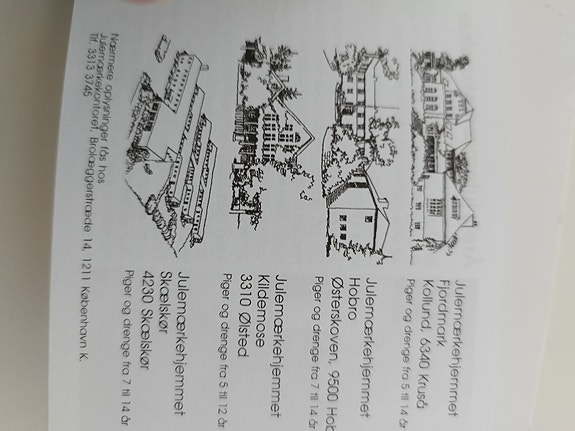 Julemærkehjemmet
Fjordmark
Kollund, 6340 Kruså
Piger og drenge fra 5 til 14 år
Julemærkehjemmet
Hobro
Østerskoven, 9500 Hob
Piger og drenge fra 7 til 14 år
Julemærkehjemmet
Kildemose
3310 Ølsted
Piger og drenge fra 5 til 12 år
Julemærkehjemmet
Skælskør
4230 Skælskør
Piger og drenge fra 7 til 14 år
Nærmere oplysninger fås hos
Julemærkekontoret, Brolæggerstræde 14, 1211 København K.
Tlf. 3313 3745